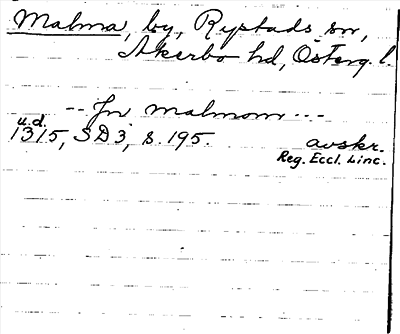 Malma, by, Rystads sn,
Åkerbo hd, Österg. l.
-- Jn malmom ---
u.d.
1315, SD3, s. 195. avskr.
Reg. Eccl. Linc.